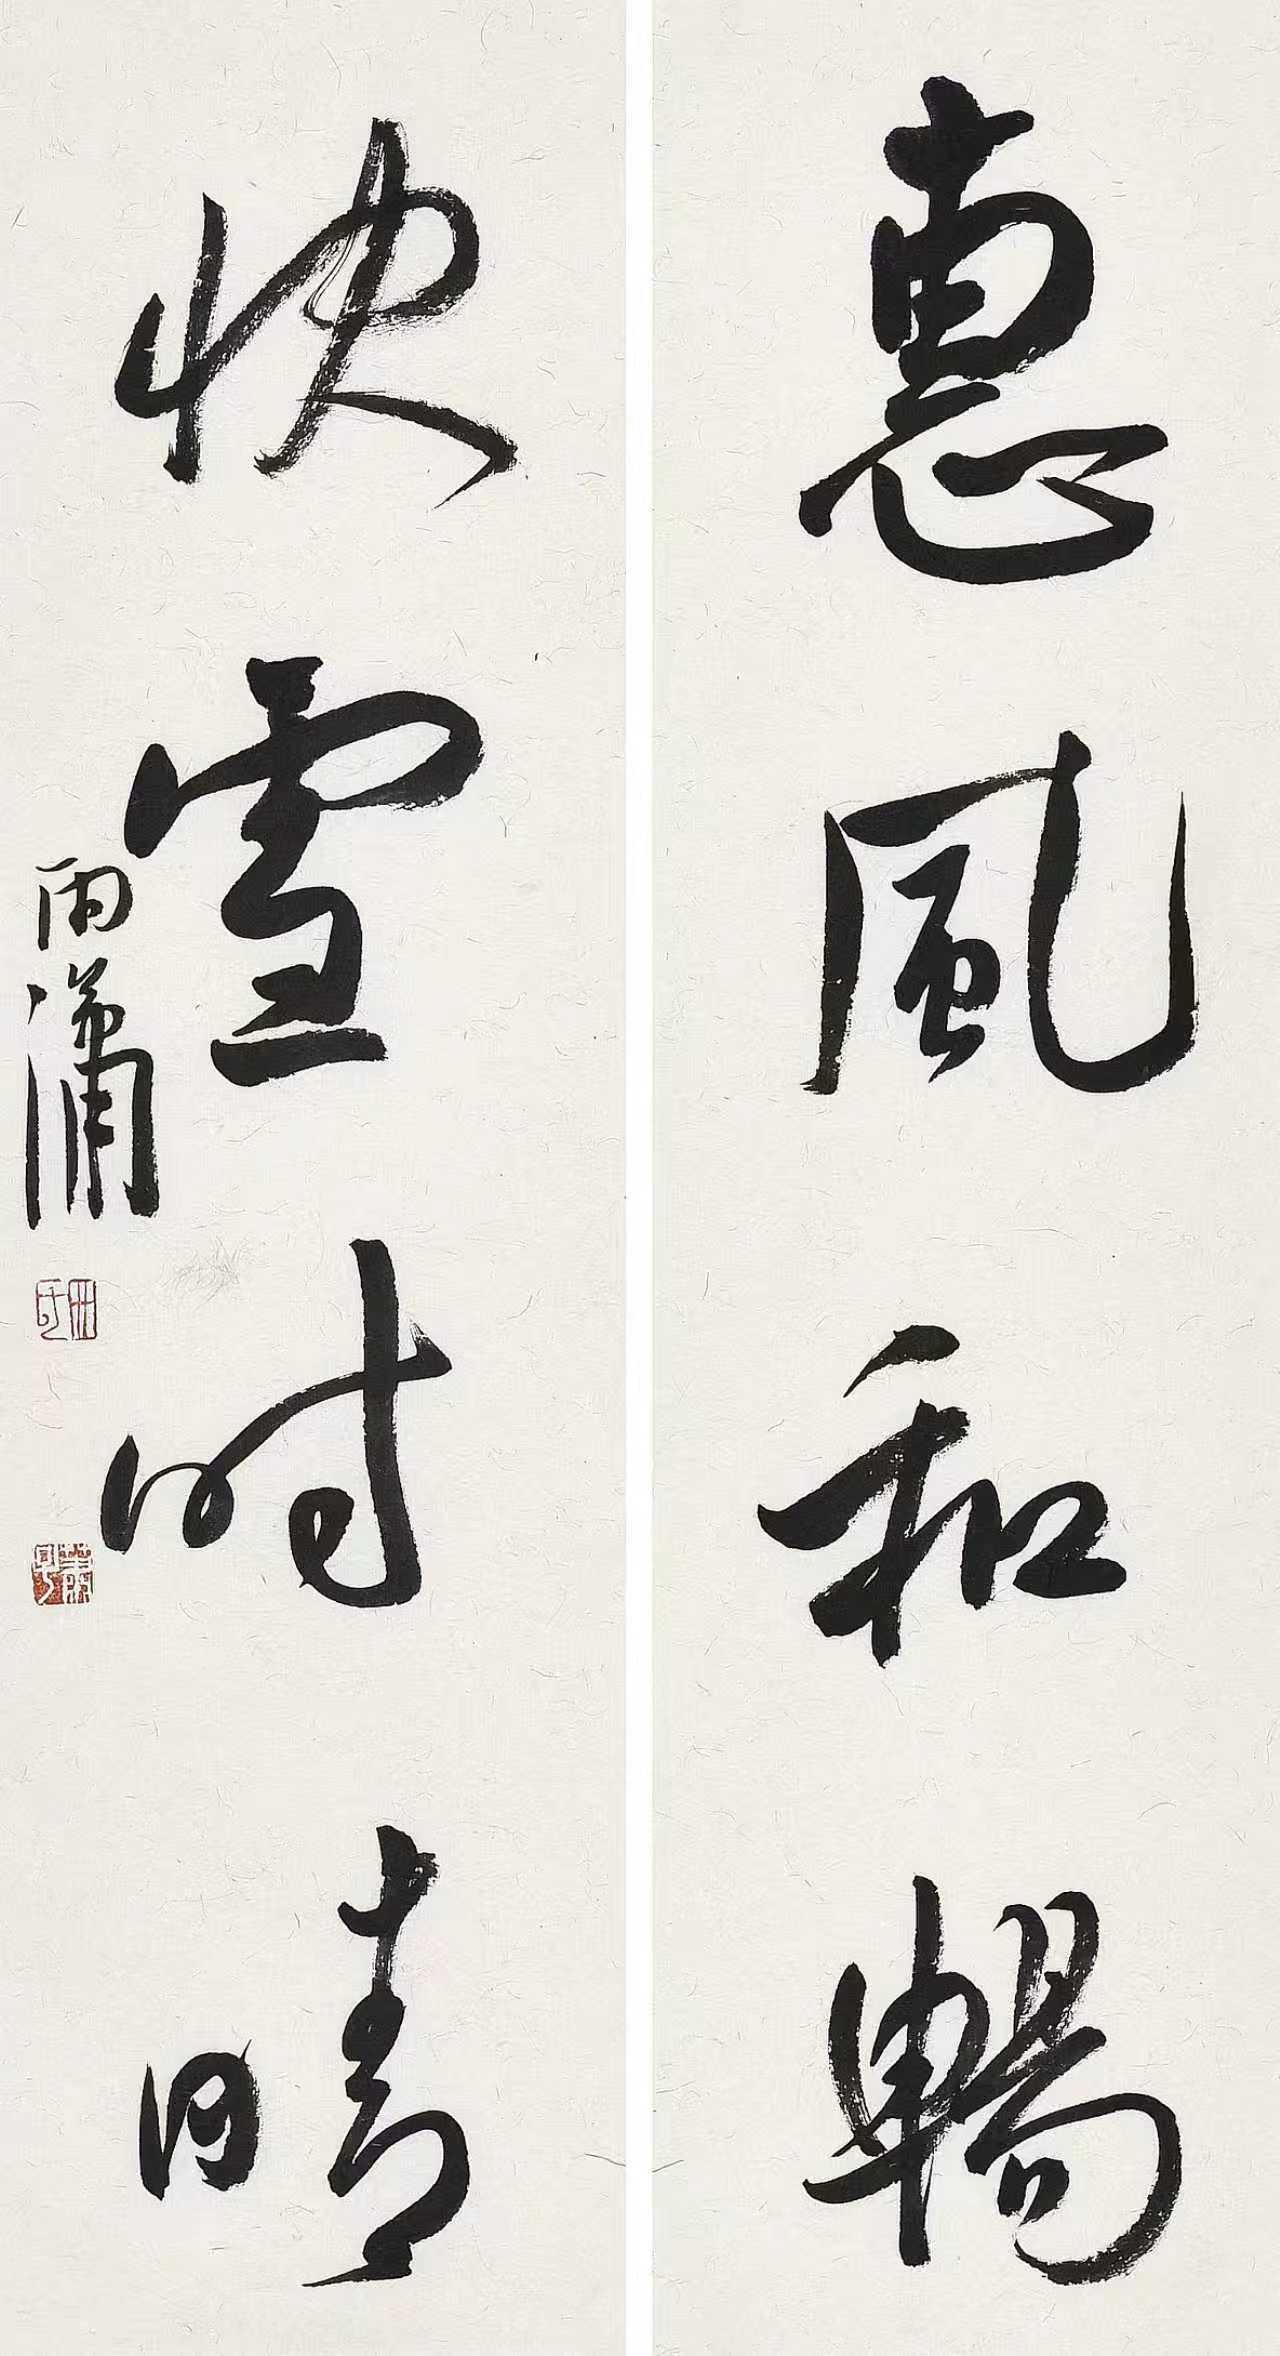 惠風和暢
快雪时晴
雨瀟